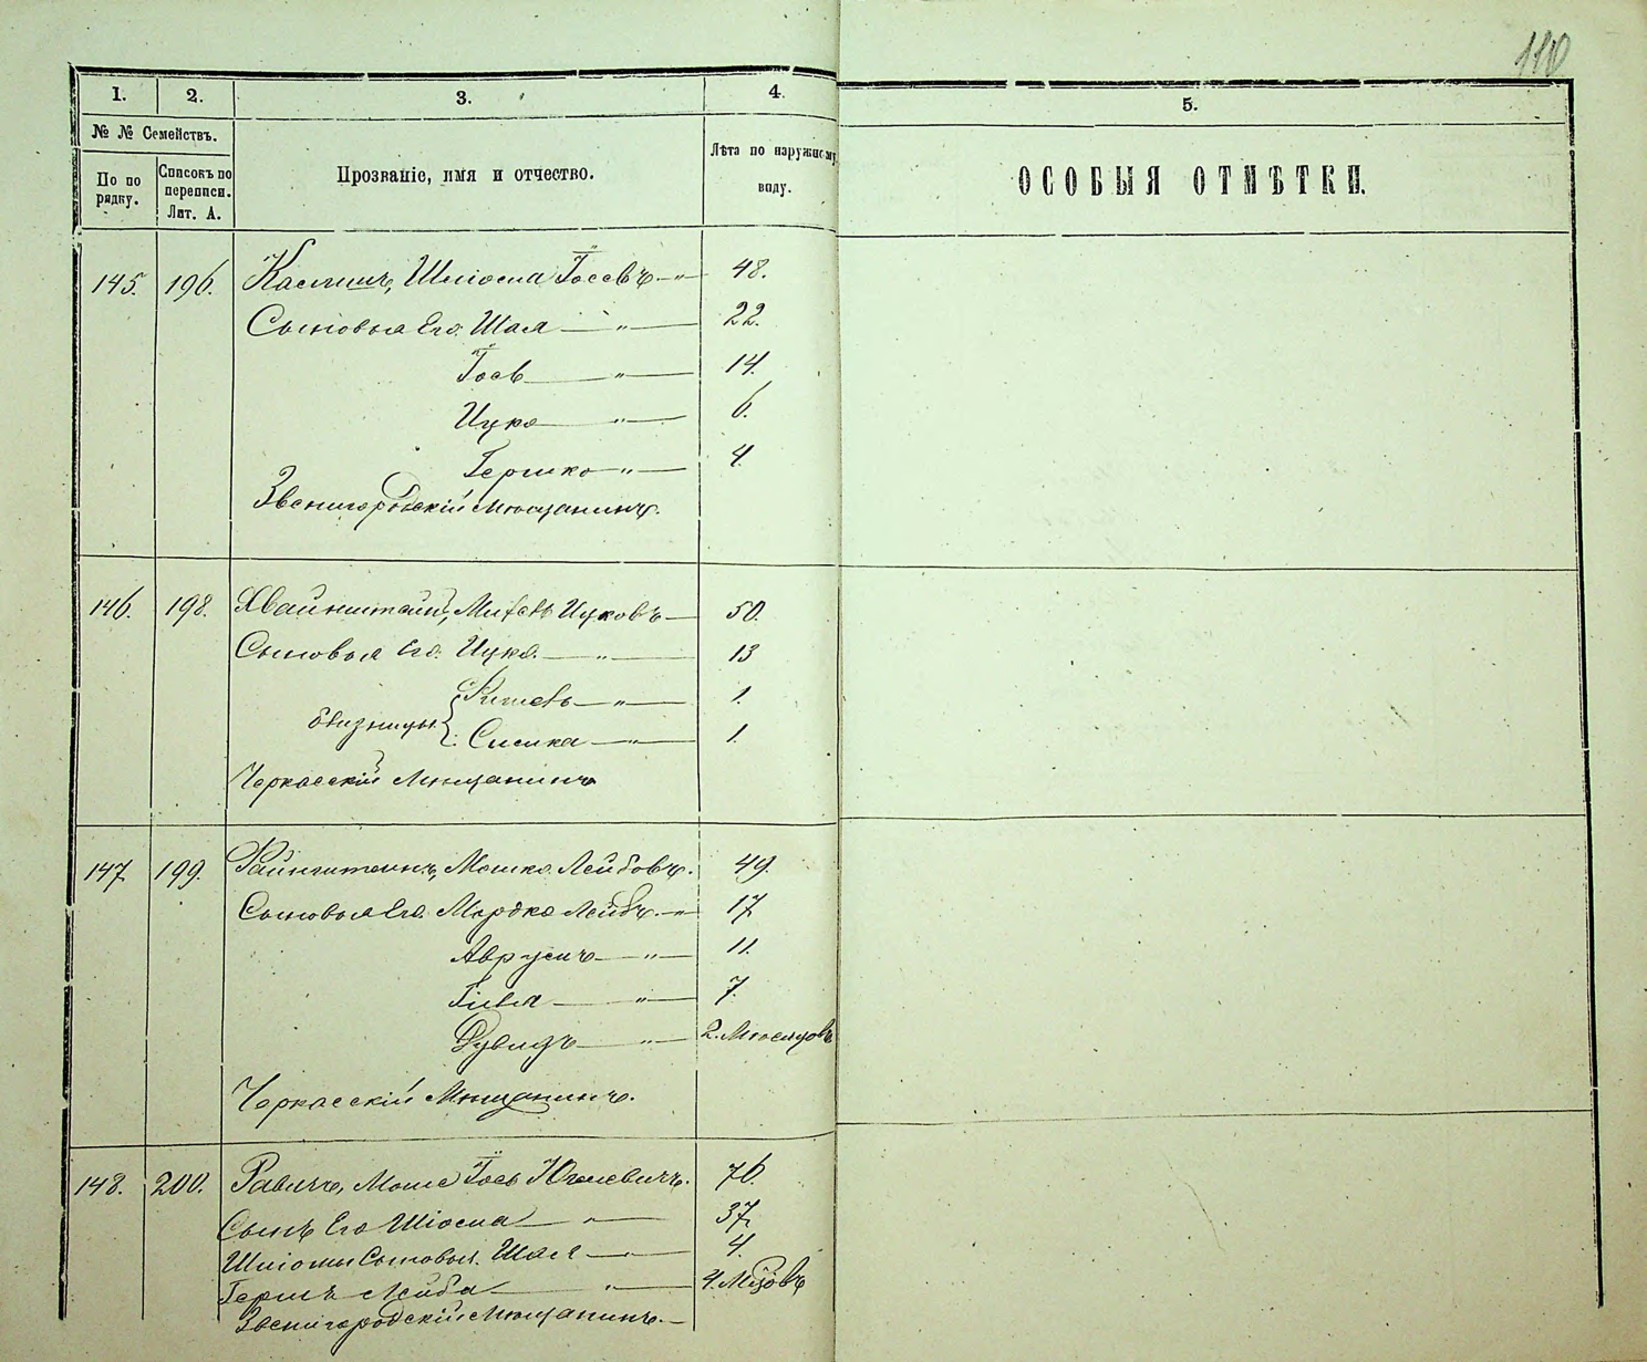 110
1. 2. 3. 4. 5.
№ № Семействъ.
По по рядку.
Списокъ по переписи. Лит. А.
Прозваніе, имя и отчество.
Лѣта по наружному виду.
ОСОБЫЯ ОТМѢТКИ.
145. 196. Шліома Іосевъ —"— 48.
Сыновья Его. Шая —"— 22.
Іосв —"— 14.
Ицко —"— 6.
Гершко —"— 4.
Звенигородскій Мѣщанинъ.
146. 198. Ицковъ — 50.
Сыновья Его. Ицко. —"— 13
—"— 1.
близнецы { Симха —"— 1.
Черкасскій Мѣщанинъ
147. 199. Файнштейнъ, Мошко Лейбовъ. 49.
Сыновья Его. Мордко Лейбъ. —"— 17.
Аврумъ —"— 11.
—"— 7.
Дувидъ —"— 2. Мѣсяцовъ
Черкасскій Мѣщанинъ.
148. 200. Равичъ, Моше Іось 76.
Сынъ Его Шліома —"— 37.
Шліомы Сыновья. Шая —"— 4.
Гершъ Лейба —"— 4. Мѣс̃овъ
Звенигородскій Мѣщанинъ. —